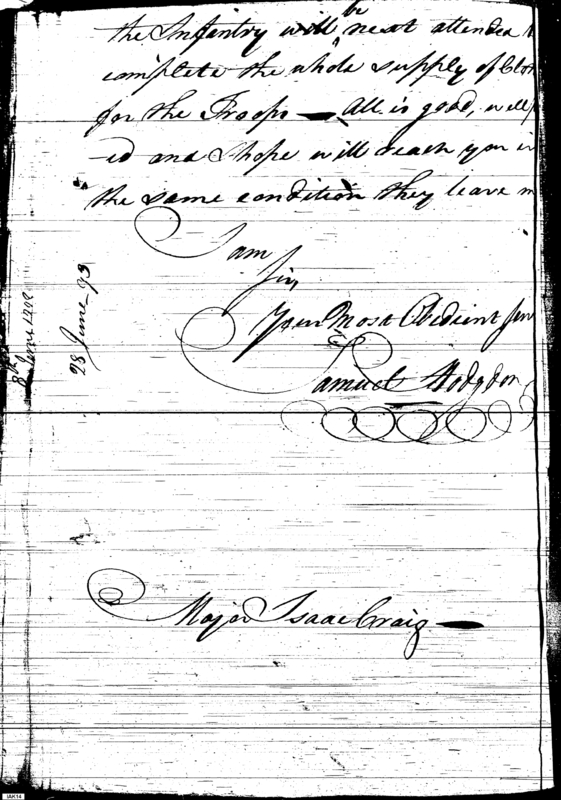 the Infantry will be next attended
complete the whole supply of Clot
for the Troops — All is good, well p
-ed and I hope will reach you in
the same condition they leave m
I am
Sir
Your Most Obedient Ser
Samuel Hodgdon
28 June 93
Major Isaac Craig —
IAK14